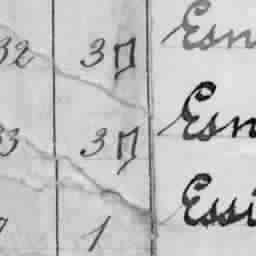 32 3 Esn
33 3 Esn
1 Essi